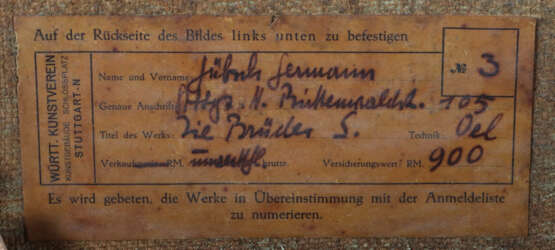 Auf der Rückseite des Bildes links unten zu befestigen
WÜRTT. KUNSTVEREIN
KUNSTGEBÄUDE SCHLOSSPLATZ
STUTTGART-N
№ 3
Name und Vorname: Hübsch Hermann
Genaue Anschrift: Stgt.-N. Birkenwaldstr. 105
Titel des Werks: Die Brüder S. Technik: Oel
Verkauf RM. brutto. Versicherungswert? RM. 900
Es wird gebeten, die Werke in Übereinstimmung mit der Anmeldeliste
zu numerieren.